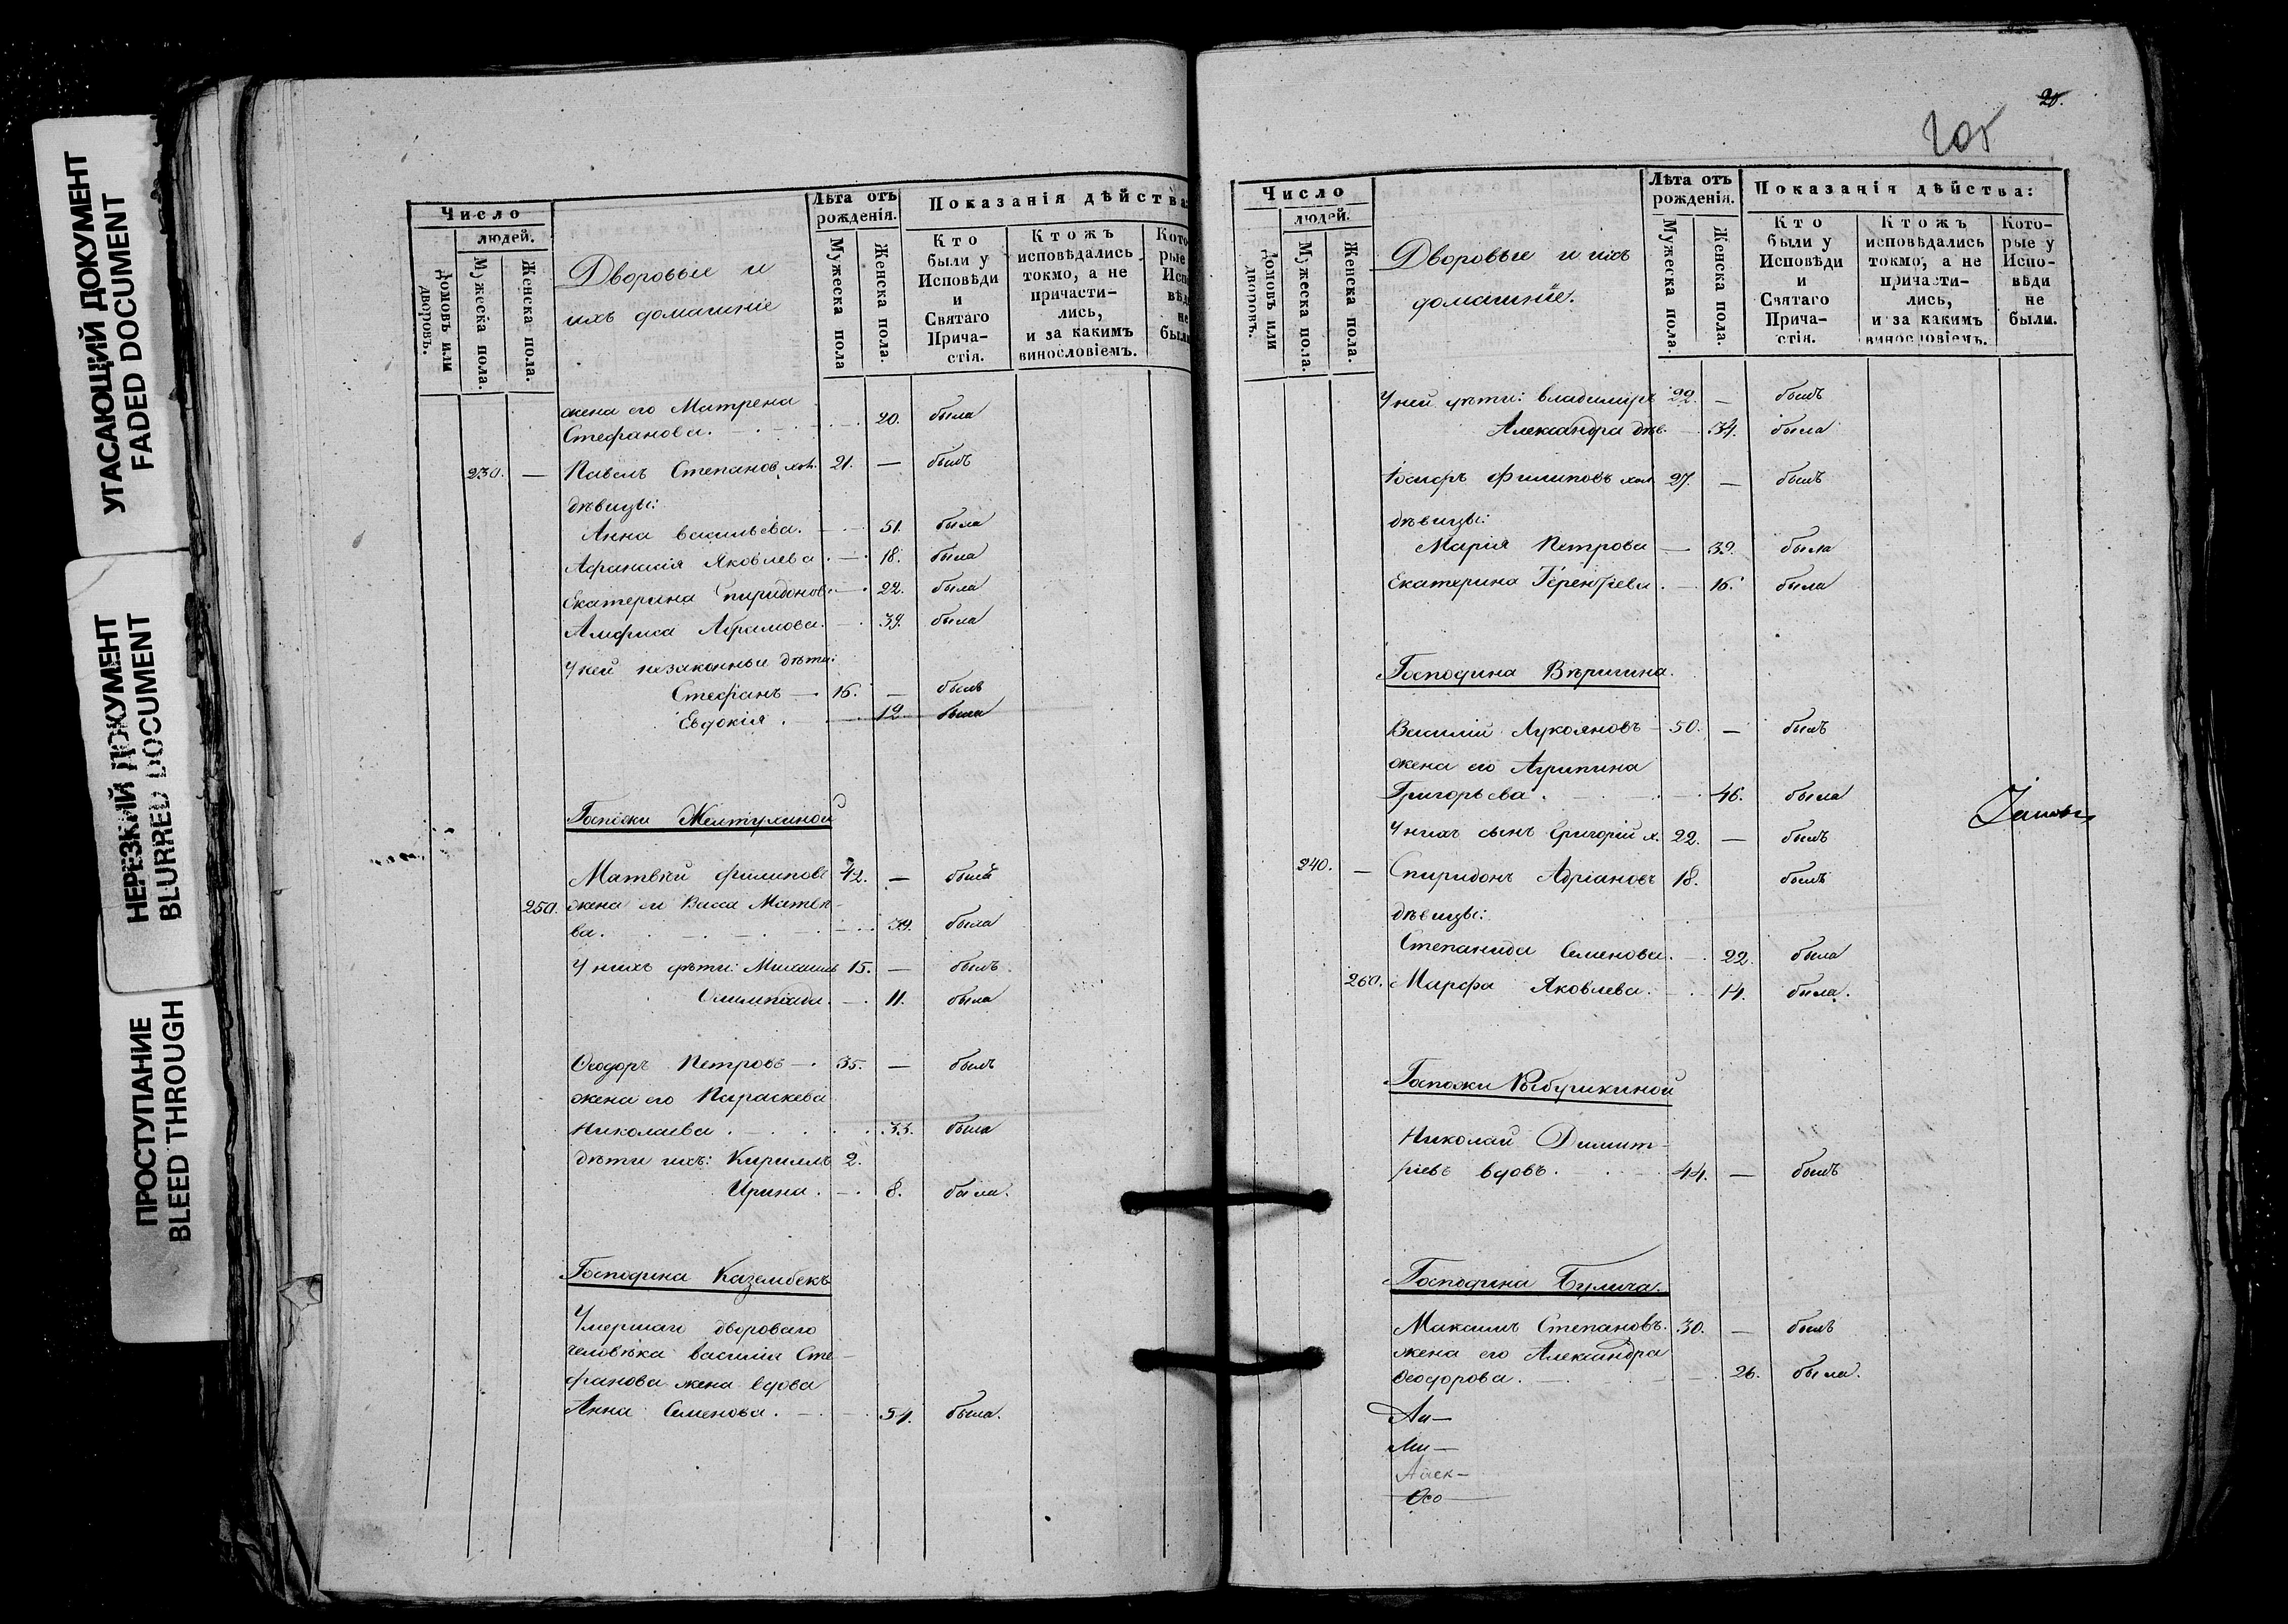 УГАСАЮЩИЙ ДОКУМЕНТ
FADED DOCUMENT
НЕРЕЗКИЙ ДОКУМЕНТ
BLURRED DOCUMENT
ПРОСТУПАНИЕ
BLEED THROUGH
Число
людей.
Домовъ или дворовъ.
Мужеска пола.
Женска пола.
Дворовые и
ихъ домашніе
Лѣта отъ рожденія.
Мужеска пола
Женска пола.
Показанія дѣйства:
Кто были у Исповѣди и Святаго Прича-стія.
Ктожъ исповѣдались токмо, а не причасти-лись, и за какимъ винословіемъ.
жена его Матрена
Стефанова. 20. была
230. — Павелъ Степановъ хол. 21. — былъ
дѣвицы:
Анна Васильева. 51. была
Афанасія Яковлева 18. была
Екатерина Спиридонов. 22. была
Абрамова. 39. была
У ней незаконные дѣти:
Стефанъ — 16. — былъ
Евдокія. 12 была
Госпожи Желтухиной
Матвѣй Филиповъ 42. — былъ
250. жена его Васса Матвѣ-
ва. 39. была
У нихъ дѣти: Михаилъ 15. — былъ
Олимпіада. 11. была
Ѳеодоръ Петровъ — 35. — былъ
жена его Параскева
Николаева. 33. была
дѣти ихъ: Кириллъ 2.
Ирина. 8. была.
Господина Казембекъ
Умершаго двороваго
человѣка Василія Сте-
фанова жена вдова
Анна Семенова. 54. была.
20.
205
Число
людей.
Домовъ или дворовъ.
Мужеска пола.
Женска пола.
Дворовые и ихъ
домашніе.
Лѣта отъ рожденія.
Мужеска пола.
Женска пола.
Показанія дѣйства:
Кто были у Исповѣди и Святаго Прича-стія.
Ктожъ исповѣдались токмо, а не причасти-лись, и за какимъ винословіемъ.
Кото-рые у Испо-вѣди не были.
У ней дѣти: Владиміръ 22. — былъ
Александра дѣв. 34. была
Іосифъ Филиповъ хол. 27. — былъ
дѣвицы:
Марія Петрова — 39. была
Екатерина Терентьева. 16. была
Господина Вѣригина.
Василій Лукояновъ 50. — былъ
жена его Агрипина
Григорьева. 46. была
У нихъ сынъ Григорій х. 22. — былъ
240. — Спиридонъ Адріановъ 18. былъ
дѣвицы:
Степанида Семенова. 22. была
260. Марфа Яковлева. 14. была.
Госпожи Рыбушкиной
Николай Димит-
ріевъ вдовъ. 44. — былъ
Господина Булича.
Максимъ Степановъ. 30. — былъ
жена его Александра
Ѳеодорова. 26. была.
Ан—
Ми—
Алек—
Ѳео—